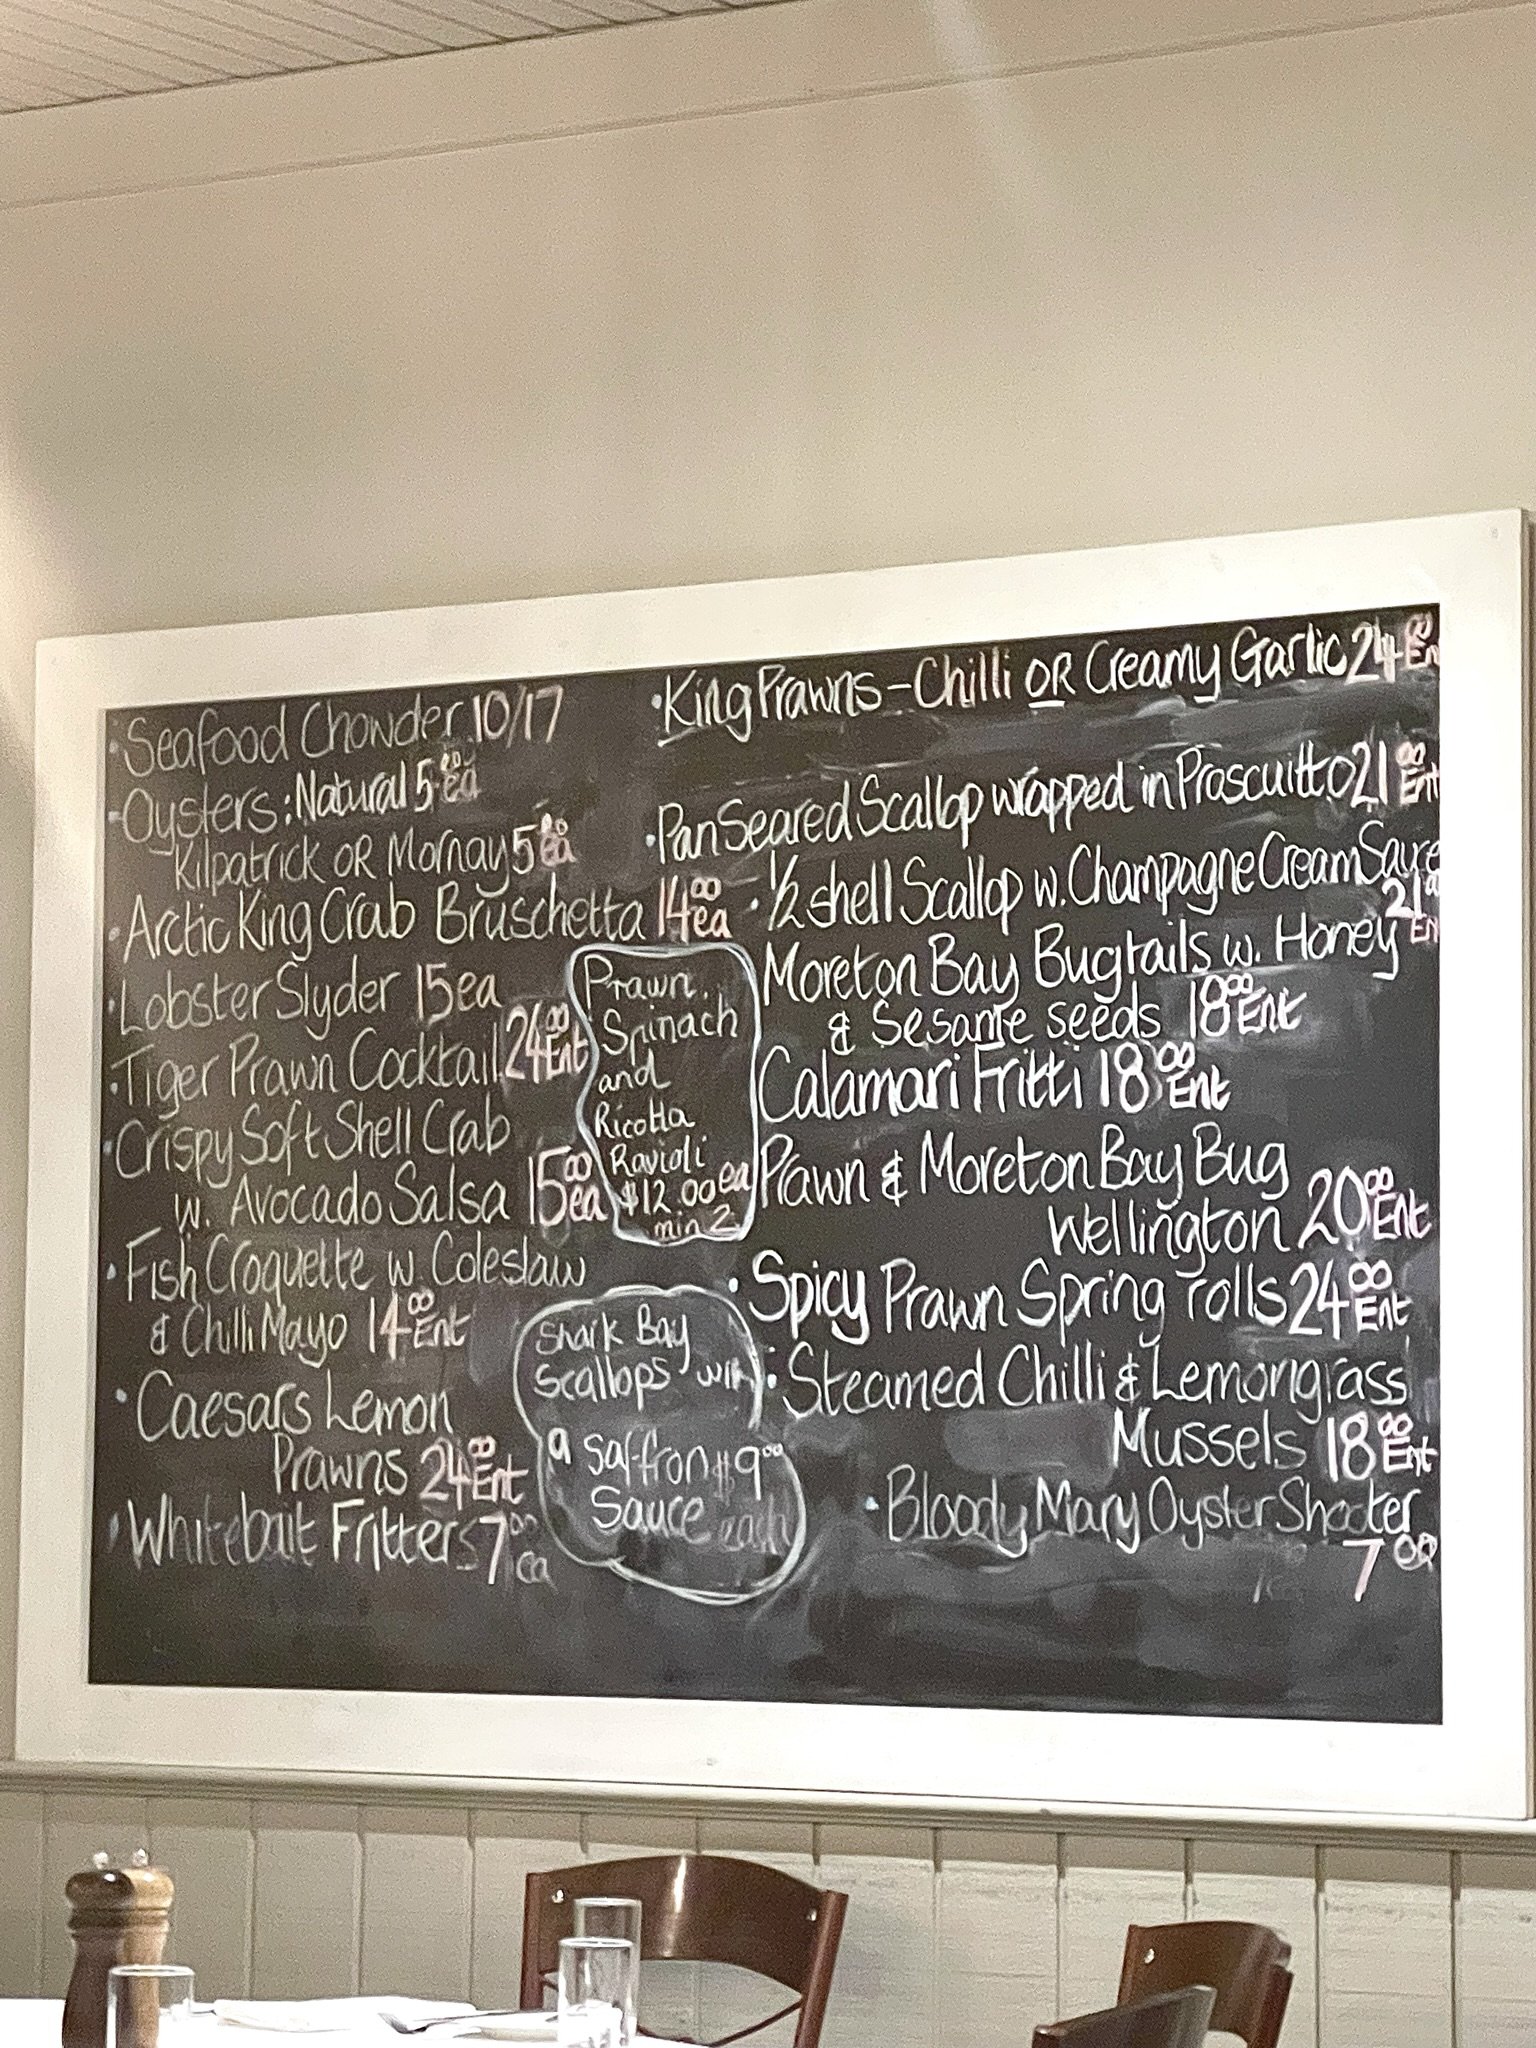 Seafood Chowder 10/17
Oysters: Natural 5.00 ea
Kilpatrick OR Mornay 5.00 ea
Arctic King Crab Bruschetta 14.00 ea
Lobster Slyder 15 ea
Tiger Prawn Cocktail 24.00 Ent
Crispy Soft Shell Crab
w. Avocado Salsa 15.00 ea
Fish Croquette w Coleslaw
& Chilli Mayo 14.00 Ent
Caesars Lemon
Prawns 24.00 Ent
Whitebait Fritters 7.00 ea
Prawn.
Spinach
and
Ricotta
Ravioli
$12.00 ea
min 2
Shark Bay
Scallops with
a saffron $9.00
Sauce each
King Prawns - Chilli OR Creamy Garlic 24.00 En
Pan Seared Scallop wrapped in Proscuitto 21.00 Ent
1/2 shell Scallop w. Champagne Cream Sauce
21.00 En
Moreton Bay Bugtails w. Honey
& Sesame seeds 18.00 Ent
Calamari Fritti 18.00 Ent
Prawn & Moreton Bay Bug
Wellington 20.00 Ent
Spicy Prawn Spring rolls 24.00 Ent
Steamed Chilli & Lemongrass
Mussels 18.00 Ent
Bloody Mary Oyster Shooter
7.00